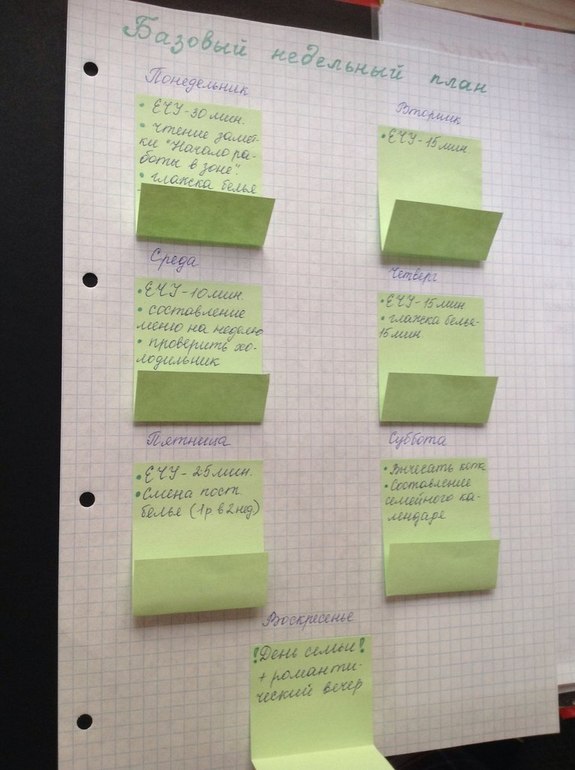 Базовый недельный план
Понедельник
• ЕЧУ-30 мин.
• чтение замет-
ки "Начало ра-
боты в зоне".
• глажка белья
Вторник
• ЕЧУ-15 мин.
Среда
• ЕЧУ-10 мин.
• составление
меню на неделю
• проверить хо-
лодильник
Четверг
• ЕЧУ-15 мин
• глажка белья-
15 мин.
Пятница
• ЕЧУ-25 мин.
• Смена пост.
белья (1р в 2нед)
Суббота
• Вычесать кота
• Составление
семейного ка-
лендаря
Воскресенье
! День семьи !
+ романти-
ческий вечер